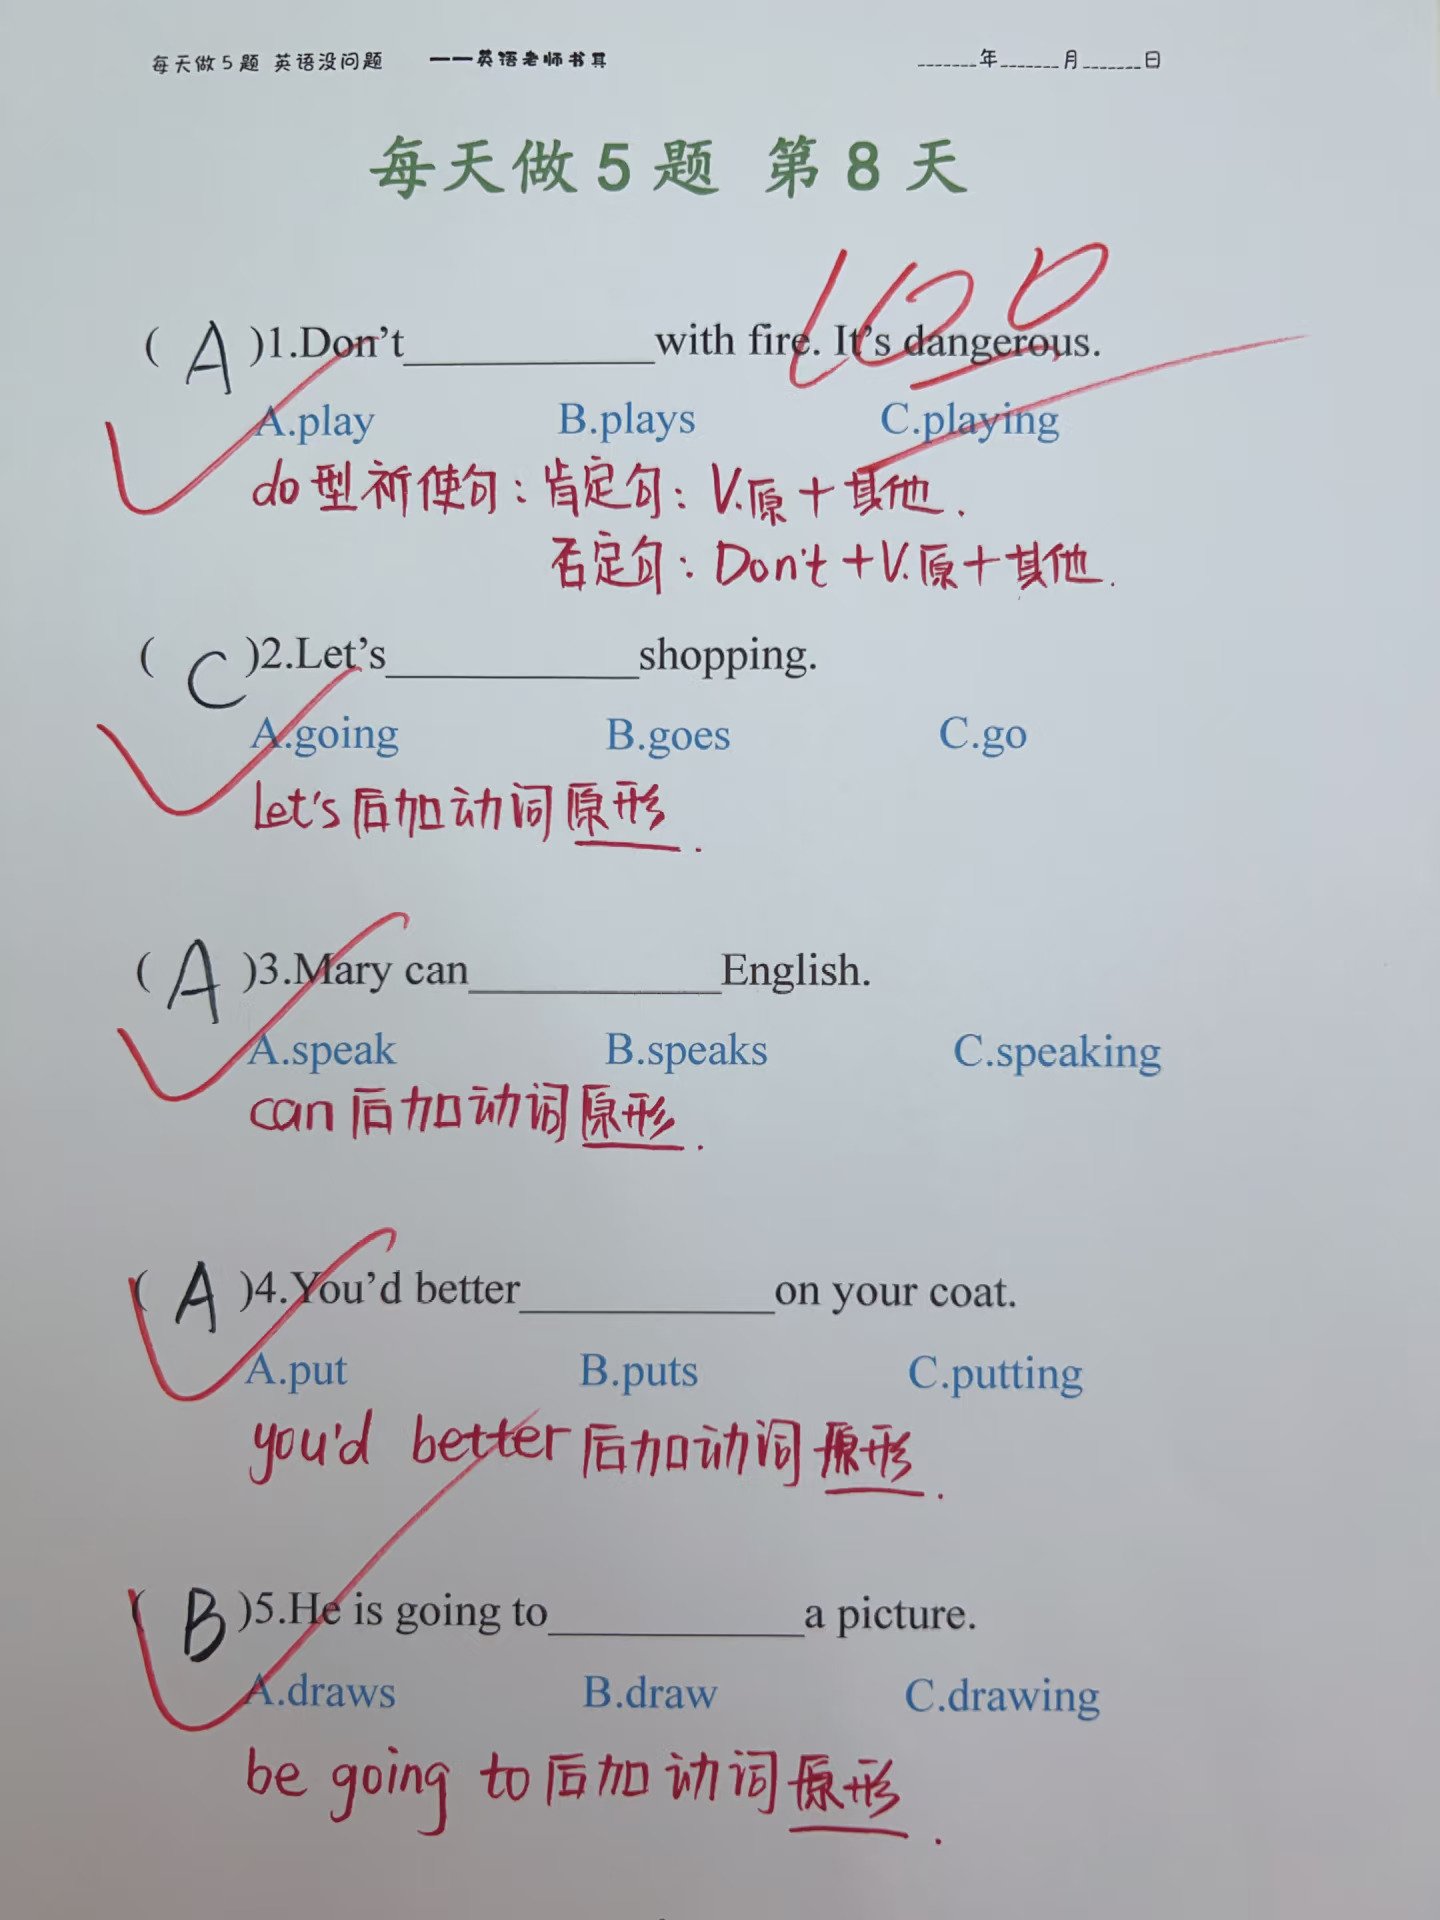 每天做5题 英语没问题 ——英语老师书其 _______年_______月_______日
每天做5题 第8天
100
( A )1.Don't__________with fire. It's dangerous.
A.play B.plays C.playing
do型祈使句:肯定句:V.原+其他.
否定句:Don't+V.原+其他.
( C )2.Let's__________shopping.
A.going B.goes C.go
Let's后加动词原形.
( A )3.Mary can__________English.
A.speak B.speaks C.speaking
can后加动词原形.
( A )4.You'd better__________on your coat.
A.put B.puts C.putting
you'd better后加动词原形.
( B )5.He is going to__________a picture.
A.draws B.draw C.drawing
be going to后加动词原形.